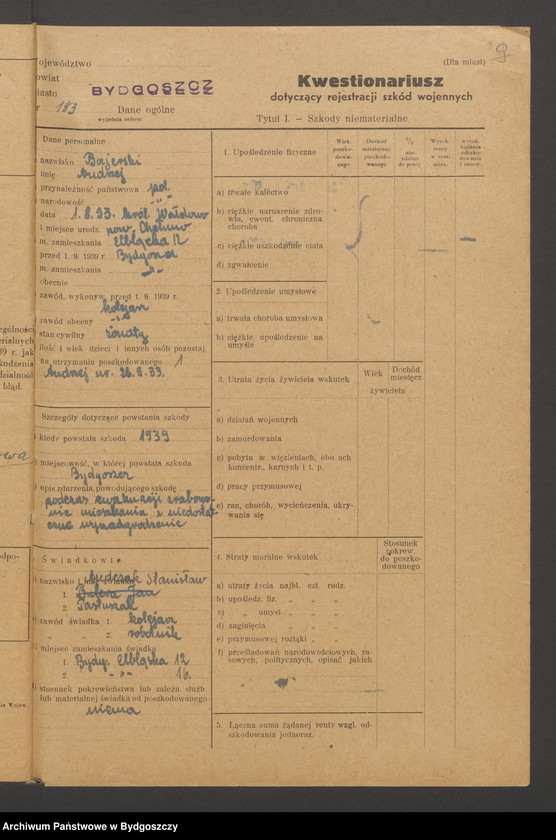 9
(Dla miast)
ojewództwo
owiat
iasto BYDGOSZCZ
r 183
Dane ogólne
wypełnia referat
Kwestionariusz
dotyczący rejestracji szkód wojennych
Tytuł I. — Szkody niematerialne
Dane personalne
nazwisko Bajerski
imię Andrzej
przynależność państwowa pol.
narodowość -"-
data 1.8.93. Król. Wałdowo
i miejsce urodz. pow. Chełmno
m. zamieszkania Elbląska 12
przed 1. 9. 1939 r. Bydgoszcz
m. zamieszkania -"-
obecnie
zawód, wykonyw. przed 1. 9. 1939 r.
kolejarz
zawód obecny -"-
stan cywilny żonaty
ilość i wiek dzieci i innych osób pozostaj.
na utrzymaniu poszkodowanego 1
Andrzej ur. 26.8.33.
Szczegóły dotyczące powstania szkody
kiedy powstała szkoda 1939
miejscowość, w której powstała szkoda
Bydgoszcz
opis zdarzenia, powodującego szkodę
podczas ewakuacji zrabowa-
nie mieszkania i niedostat
eczne wynagrodzenie
Świadkowie
nazwisko i imię świadka Stanisław
1. Jan
2.
zawód świadka 1. kolejarz
" " 2. robotnik
miejsce zamieszkania świadka
1. Bydg. Elbląska 12
2. -"- 16.
stosunek pokrewieństwa lub zależn. służb.
lub materialnej świadka od poszkodowanego
niema
1. Upośledzenie fizyczne
Wiek poszkodowanego
Dochód miesięczny poszkodowanego
% niezdolności do pracy
a) trwałe kalectwo
b) ciężkie naruszenie zdro-
wia, ewent. chroniczna
choroba
c) ciężkie uszkodzenie ciała
d) zgwałcenie
2. Upośledzenie umysłowe
a) trwała choroba umysłowa
b) ciężkie upośledzenie na
umyśle
3. Utrata życia żywiciela wskutek
Wiek
Dochód miesięcz.
żywiciela
a) działań wojennych
b) zamordowania
c) pobytu w więzieniach, obo ach
koncentr., karnych i t. p.
d) pracy przymusowej
e) ran, chorób, wycieńczenia, ukry-
wania się
4. Straty moralne wskutek
Stosunek pokrew. do poszkodowanego
a) utraty życia najbl. czł. rodz.
b) upośledz. fiz. " " "
c) " umysł. " " "
d) zaginięcia " " "
e) przymusowej rozłąki " " "
f) prześladowań narodowościowych, ra-
sowych, politycznych, opisać jakich
5. Łączna suma żądanej renty wzgl. od-
szkodowania jednoraz.
Archiwum Państwowe w Bydgoszczy